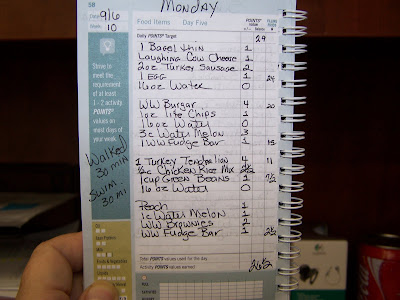 58
Monday
Date 9/6
Week 10
Food Items Day Five
POINTS® Value
Daily POINTS® Target 29
1 Bagel thin 1
Laughing Cow Cheese 1
2oz Turkey Sausage 2
1 EGG 1 24
16oz Water 0
WW Burgar 4 20
1oz Life Chips 1
16oz Water 0
3c Water Melon 3
1 WW Fudge Bar 1 15
1 Turkey Tenderlion 4 11
1/2c Chicken Rice Mix 2 1/2
1cup Green Beans 1 7 1/2
16oz Water 0
Peach 1
1c Water Melon 1
WW Brownies 2
WW Fudge Bar 1 2 1/2
Total POINTS® values used for the day 26 1/2
Activity POINTS® values earned
Strive to
meet the
requirement
of at least
1 - 2 activity
POINTS®
values on
most days of
your week.
Walked
30 min
Swim
30 mi